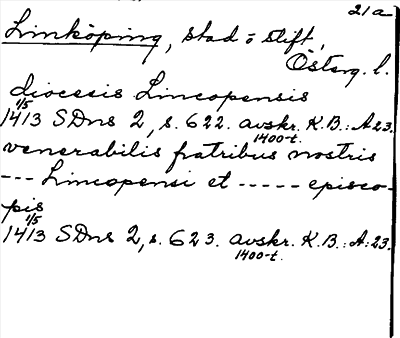 21a
Linköping, stad o stift,
Österg. l.
diocesis Lincopensis
1/5
1413 SDns 2, s. 622. avskr. K.B.: A:23.
1400-t.
venerabilis fratribus nostris
--- Lincopensi et ----- episco-
pis
1/5
1413 SDns 2, s. 623. avskr. K.B.: A:23.
1400-t.